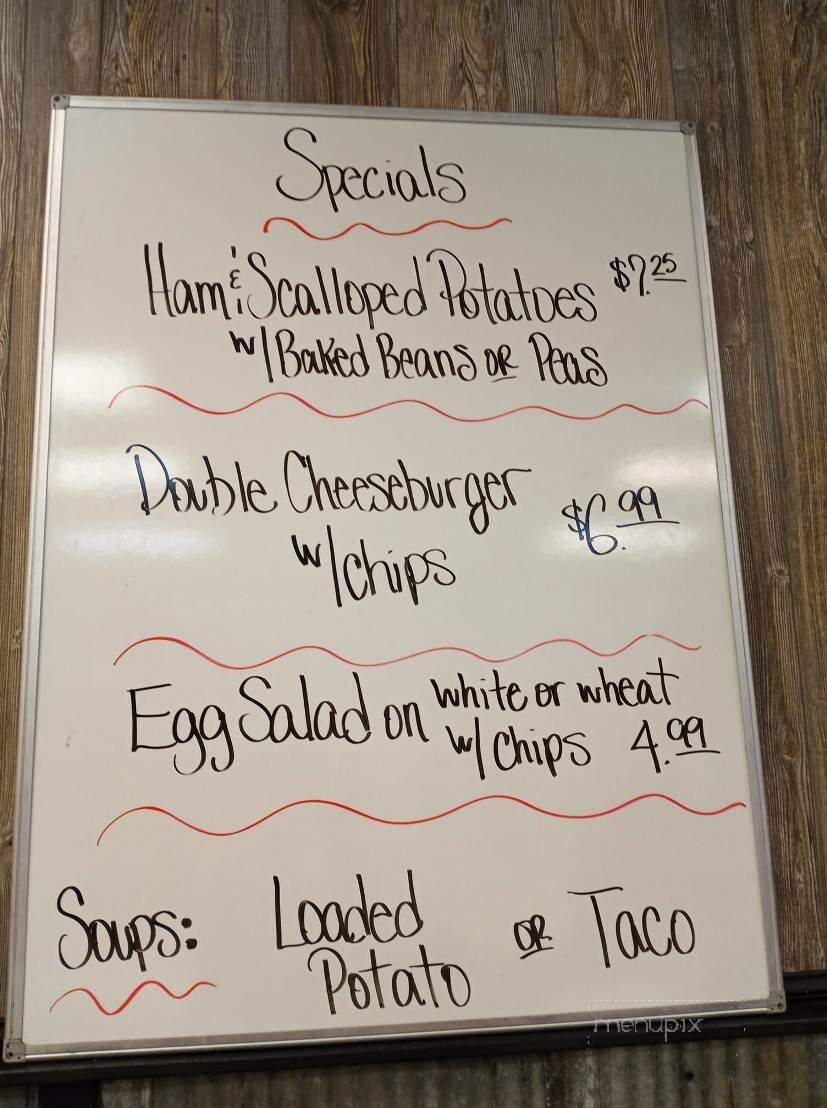 Specials
Ham & Scalloped Potatoes $7.25
w/Baked Beans OR Peas
Double Cheeseburger $6.99
w/chips
Egg Salad on white or wheat
w/chips 4.99
Soups: Loaded Potato OR Taco
menupix